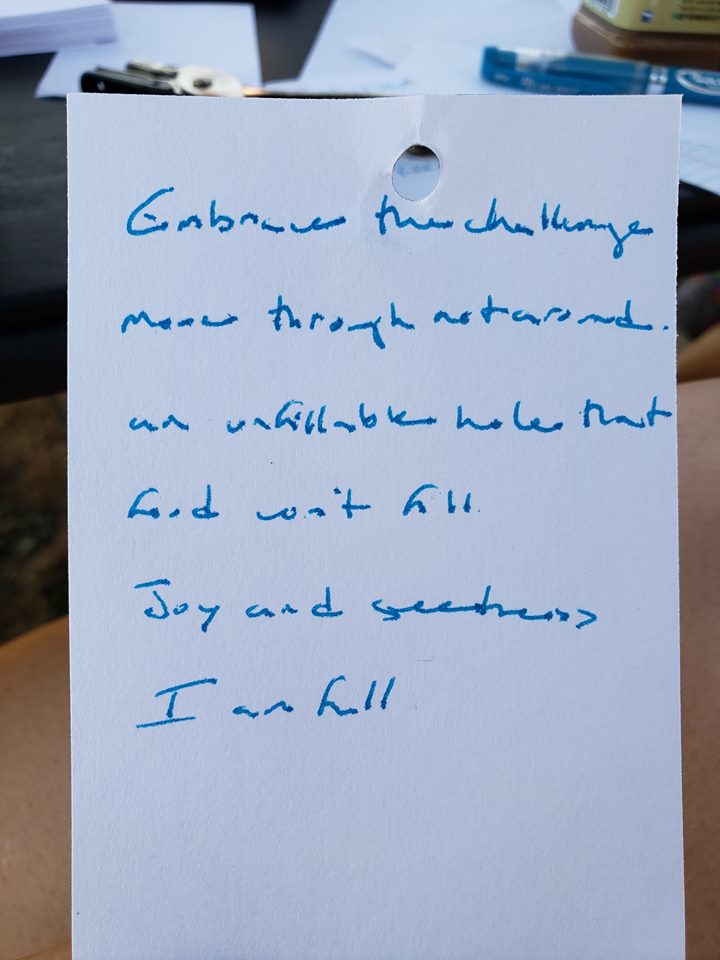 Embrace the challenge
move through not around.
an unfillable hole that
food won't fill.
Joy and
I am full